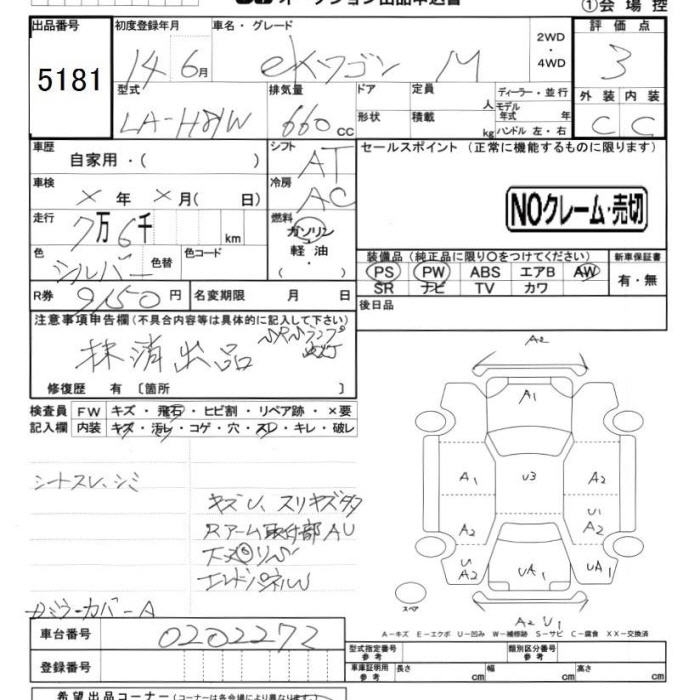 オークション出品申込書
①会 場 控
出品番号 初度登録年月 車名・グレード 2WD・4WD 評価点
5181 14年6月 eKワゴン M 3
型式 排気量 ドア 定員 人 ディーラー・並行 外装 内装
LA-H81W 660 CC 形状 積載 kg モデル年式 年 ハンドル 左・右 C C
車歴 自家用・( ) シフト AT セールスポイント (正常に機能するものに限ります)
車検 ×年 ×月( 日) 冷房 AC
NOクレーム・売切
走行 7万6千 km 燃料 ガソリン・軽油・( )
色 シルバー 色替 色コード
装備品 (純正品に限り○をつけてください) 新車保証書
PS PW ABS エアB AW 有・無
SR ナビ TV カワ
R券 9150円 名変期限 月 日 後日品
注意事項申告欄 (不具合内容等は具体的に記入して下さい)
抹消出品
修復歴 有 〔箇所 〕
検査員 FW キズ・飛石・ヒビ割・リペア跡・×要
記入欄 内装 キズ・汚レ・コゲ・穴・スレ・キレ・破レ
シートスレ、シミ
キズU、スリキズ多
Rアーム取付部AU
エンドパネルW
カバーA
A2
A1
A1 U3 A2
U1
A2 A2
U A2 UA1 UA1
スペア
A2 U1
A−キズ E−エクボ U−凹み W−補修跡 S−サビ C−腐食 XX−交換済
車台番号 0202272
登録番号
型式指定番号 参考 類別区分番号 参考
車庫証明用 参考 長さ cm 幅 cm 高さ cm
希望出品コーナー (コーナーは各会場により異なります)